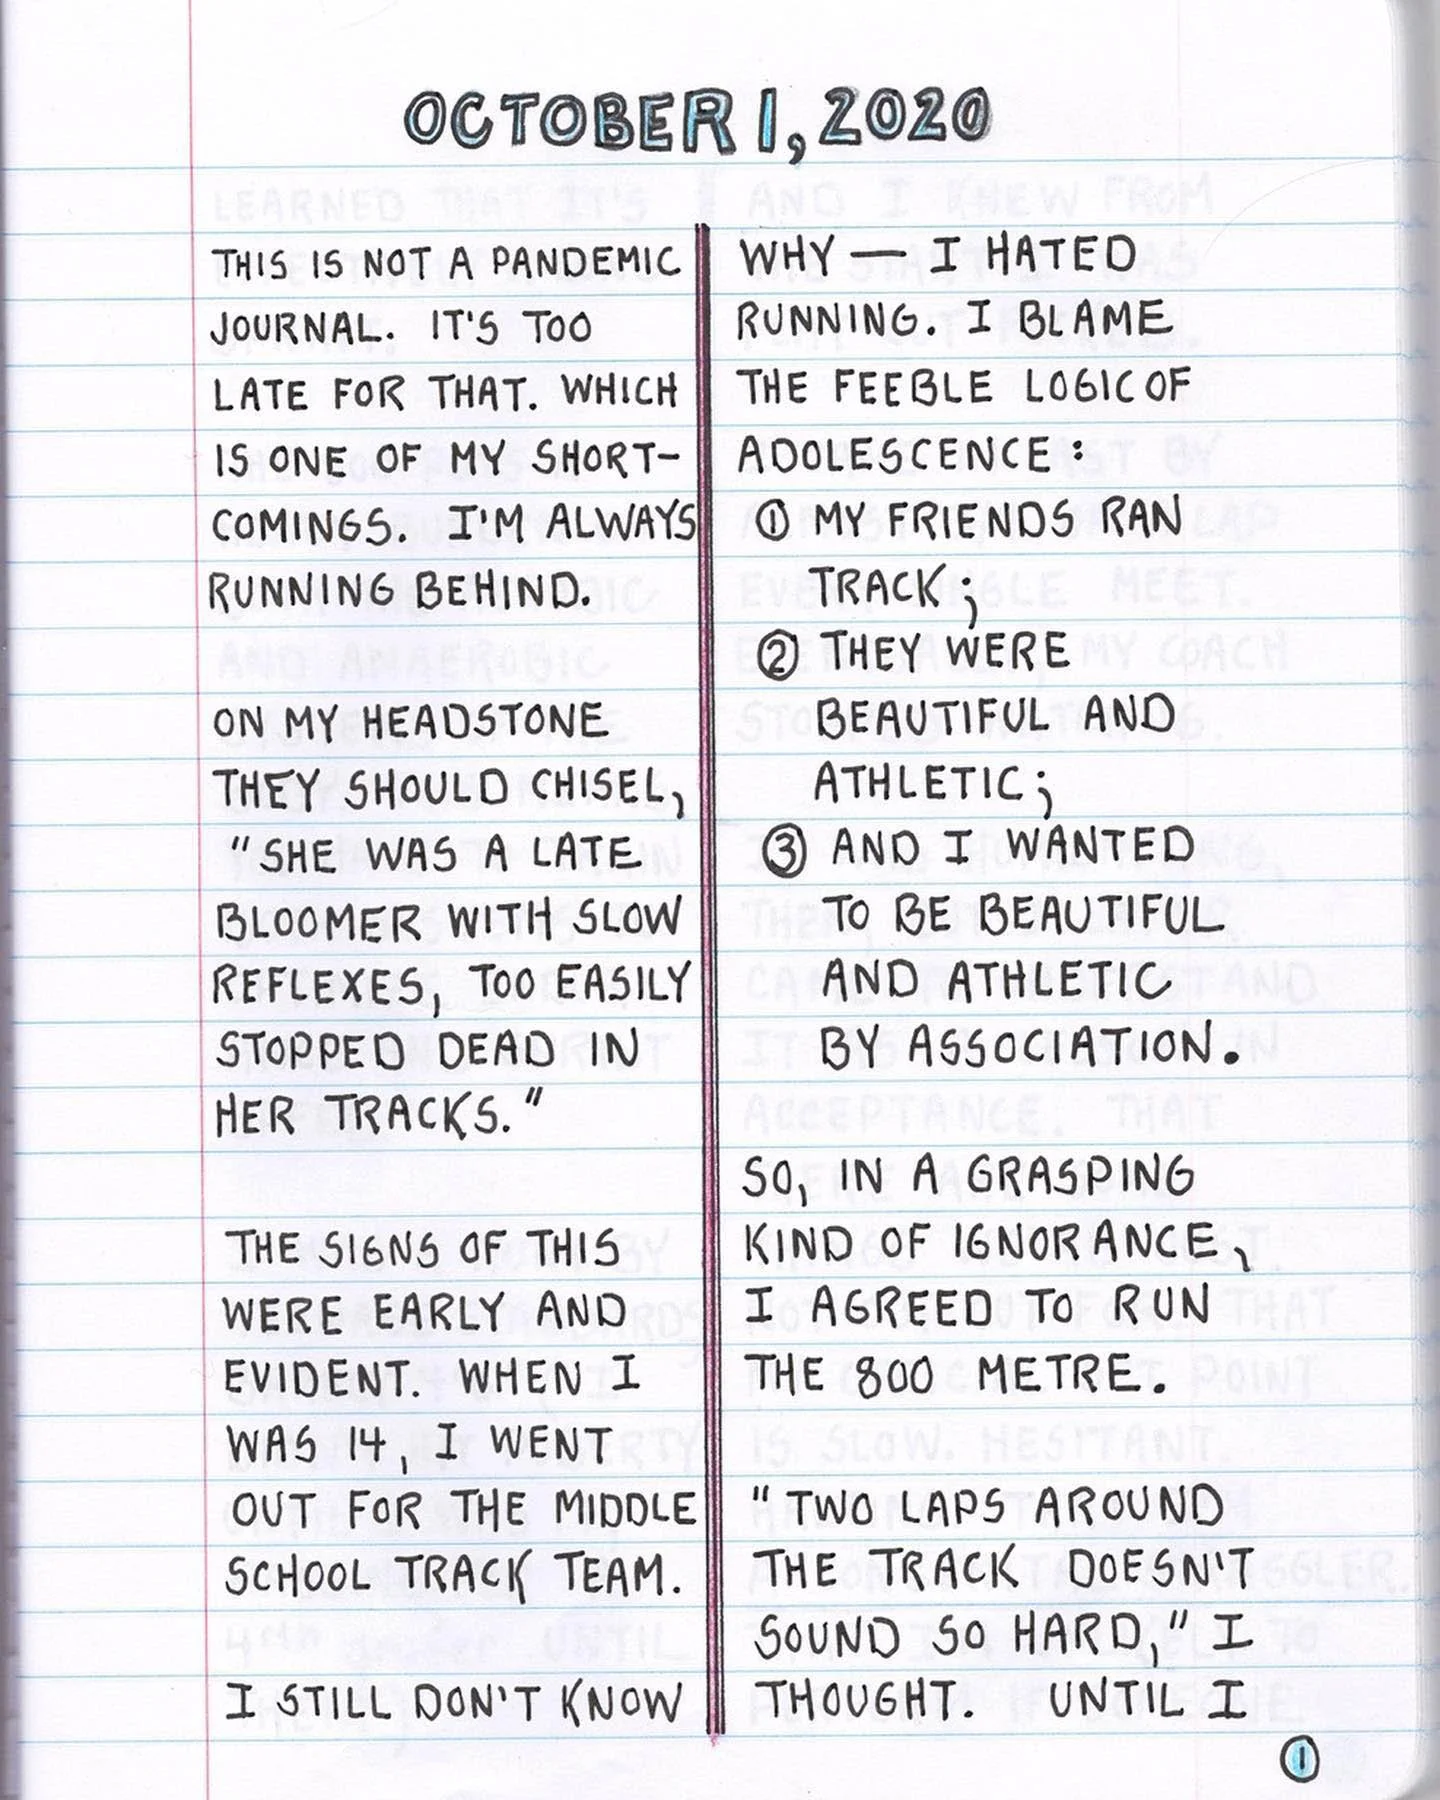 OCTOBER 1, 2020
THIS IS NOT A PANDEMIC
JOURNAL. IT'S TOO
LATE FOR THAT. WHICH
IS ONE OF MY SHORT-
COMINGS. I'M ALWAYS
RUNNING BEHIND.
ON MY HEADSTONE
THEY SHOULD CHISEL,
"SHE WAS A LATE
BLOOMER WITH SLOW
REFLEXES, TOO EASILY
STOPPED DEAD IN
HER TRACKS."
THE SIGNS OF THIS
WERE EARLY AND
EVIDENT. WHEN I
WAS 14, I WENT
OUT FOR THE MIDDLE
SCHOOL TRACK TEAM.
I STILL DON'T KNOW
WHY — I HATED
RUNNING. I BLAME
THE FEEBLE LOGIC OF
ADOLESCENCE:
① MY FRIENDS RAN
TRACK;
② THEY WERE
BEAUTIFUL AND
ATHLETIC;
③ AND I WANTED
TO BE BEAUTIFUL
AND ATHLETIC
BY ASSOCIATION.
SO, IN A GRASPING
KIND OF IGNORANCE,
I AGREED TO RUN
THE 800 METRE.
"TWO LAPS AROUND
THE TRACK DOESN'T
SOUND SO HARD," I
THOUGHT. UNTIL I
①